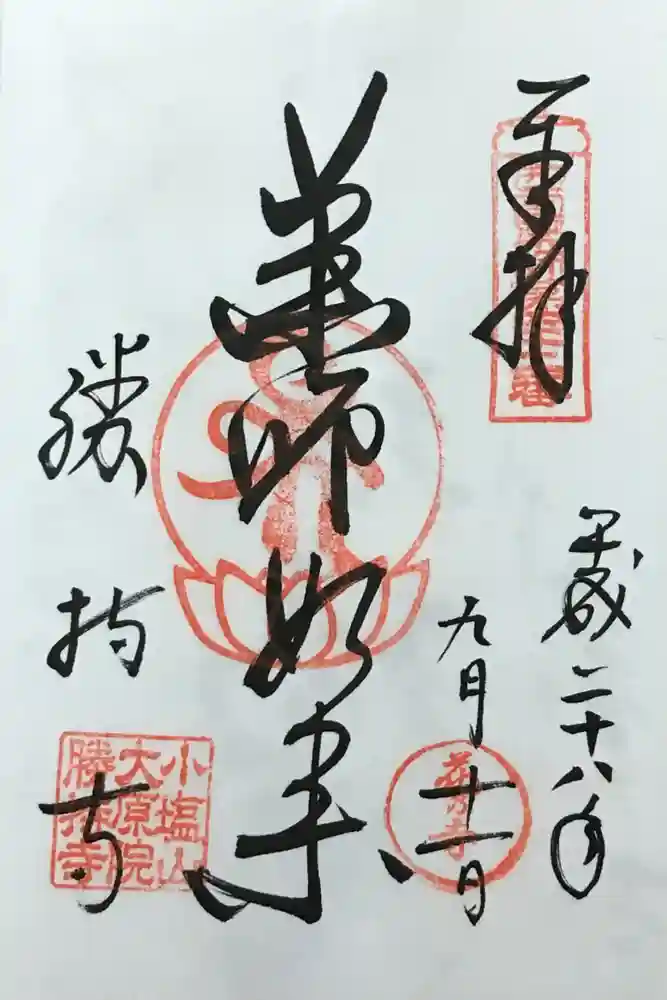 奉拝
平成二十八年
九月十一日
花の寺
薬師如来
勝持寺
小塩山
大原院
勝持寺